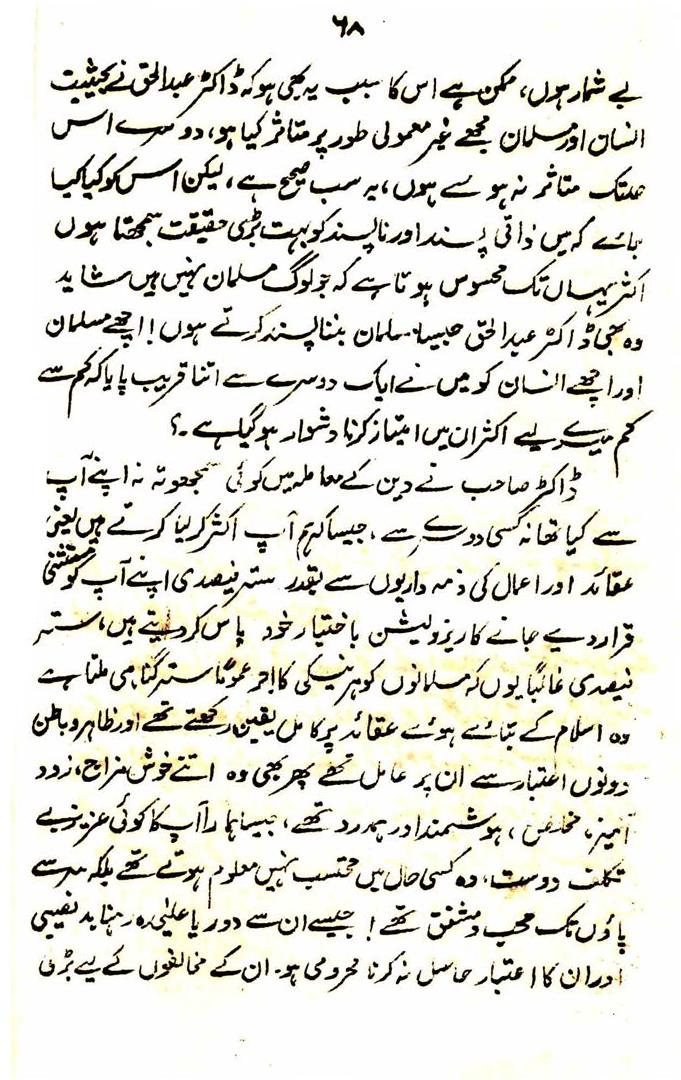 ۶۸
بے شمار ہوں، ممکن ہے اس کا سبب یہ بھی ہو کہ ڈاکٹر عبدالحق نے بحیثیت
انسان اور مسلمان مجھے غیر معمولی طور پر متاثر کیا ہو، دوسرے اس
حد تک متاثر نہ ہوئے ہوں، یہ سب صحیح ہے، لیکن اس کو کیا کیا
جائے کہ میں ذاتی پسند اور ناپسند کو بہت بڑی حقیقت سمجھتا ہوں
اکثر یہاں تک محسوس ہوتا ہے کہ جو لوگ مسلمان نہیں ہیں شاید
وہ بھی ڈاکٹر عبدالحق جیسا مسلمان بننا پسند کرتے ہوں! اچھے مسلمان
اور اچھے انسان کو میں نے ایک دوسرے سے اتنا قریب پایا کہ کم سے
کم میرے لیے اکثر ان میں امتیاز کرنا دشوار ہو گیا ہے۔؟
ڈاکٹر صاحب نے دین کے معاملہ میں کوئی سمجھوتہ نہ اپنے آپ
سے کیا تھا نہ کسی دوسرے سے، جیسا کہ ہم آپ اکثر کر لیا کرتے ہیں یعنی
عقائد اور اعمال کی ذمہ داریوں سے بقدر ستر فیصدی اپنے آپ کو مستثنیٰ
قرار دیے جانے کا ریزولیشن باختیار خود پاس کر دیتے ہیں، ستر
فیصدی غالباً یوں کہ مسلمانوں کو ہر نیکی کا اجر عموماً ستر گنا ہی ملتا ہے
وہ اسلام کے بتائے ہوئے عقائد پر کامل یقین رکھتے تھے اور ظاہر و باطن
دونوں اعتبار سے ان پر عامل تھے پھر بھی وہ اتنے خوش مزاج، زود
آمیز، مخلص، ہوشمند اور ہمدرد تھے، جیسا ہمارا آپ کا کوئی عزیز بے
تکلف دوست، وہ کسی حال میں محتسب نہیں معلوم ہوتے تھے بلکہ سر سے
پاؤں تک محب و مشفق تھے! جیسے ان سے دور یا علیٰحدہ رہنا بد نصیبی
اور ان کا اعتبار حاصل نہ کرنا محرومی ہو۔ ان کے مخالفوں کے لیے بڑی